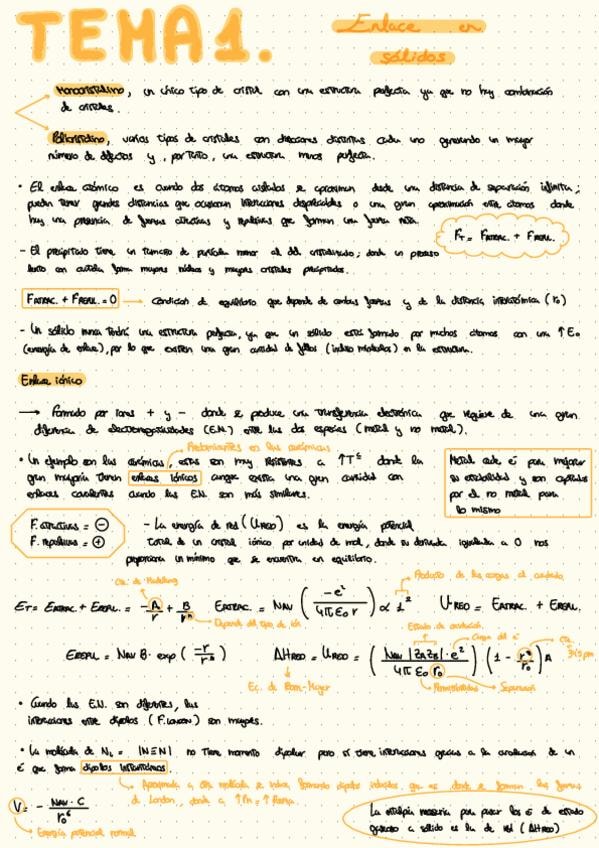 TEMA 1.
Enlace en
sólidos
Monocristalino, un único tipo de cristal con una estructura perfecta ya que no hay combinación
de cristales.
Policristalino, varios tipos de cristales con direcciones distintas cada uno generando un mayor
número de defectos y, por tanto, una estructura menos perfecta.
• El enlace atómico es cuando dos átomos aislados se aproximan desde una distancia de separación infinita;
pueden tener grandes distancias que ocasionan interacciones despreciables o una gran aproximación entre átomos donde
hay una presencia de fuerzas atractivas y repulsivas que forman una fuerza neta.
FT = FATRAC. + FREPUL.
- El precipitado tiene un tamaño de partícula menor al del cristalizado; donde un proceso
lento con cuidado forma mayores núcleos y mayores cristales precipitados.
FATRAC. + FREPUL. = 0 → condición de equilibrio que depende de ambas fuerzas y de la distancia interatómica (r₀)
- Un sólido nunca tendrá una estructura perfecta, ya que un sólido está formado por muchos átomos con una ↑E₀
(energía de enlace), por lo que existen una gran cantidad de fallos en la estructura.
Enlace iónico
→ Formado por iones + y - donde se produce una transferencia electrónica que requiere de una gran
diferencia de electronegatividades (E.N.) entre las dos especies (metal y no metal).
Predominantes en las cerámicas
• Un ejemplo son las cerámicas, estas son muy resistentes a ↑Tª donde la
gran mayoría tienen enlaces iónicos aunque exista una gran cantidad con
enlaces covalentes cuando las E.N. son más similares.
Metal cede e⁻ para mejorar
su estabilidad y son captados
por el no metal para
lo mismo
F. atractivas = ⊖
F. repulsivas = ⊕
- La energía de red (UREO) es la energía potencial
total de un cristal iónico por unidad de mol, donde su derivada igualada a 0 nos
proporciona un mínimo que se encuentra en equilibrio.
Cte. de Madelung
Producto de las cargas al cuadrado
ET = EATRAC. + EREPUL. = -A/r + B/rⁿ EATRAC. = NAV (-e²/4πε₀r) α z² UREO = EATRAC. + EREPUL.
Depende del tipo de ion
Estado de oxidación.
Carga del e⁻
Cte. 34'5 pm
EREPUL. = NAV B · exp (-r/r*) ΔHREO = UREO = (NAV |ZAZB| · e²/4πε₀r₀) (1 - r*/r₀) A
Ec. de Born-Mayer
Permitividad
Separación
• Cuando las E.N. son diferentes, las
interacciones entre dipolos (F. London) son mayores.
• La molécula de N₂ = |N≡N| no tiene momento dipolar pero sí tiene interacciones gracias a la oscilación de un
e⁻ que forma dipolos instantáneos.
Aproximada a otra molécula se induce, formando dipolos inducidos que es donde se forman las fuerzas
de London, donde a ↑Pm = ↑ fuerza.
V = - NAV · C/r₀⁶
Energía potencial normal
La entalpía necesaria para pasar los e⁻ de estado
gaseoso a sólido es la de red (ΔHREO)